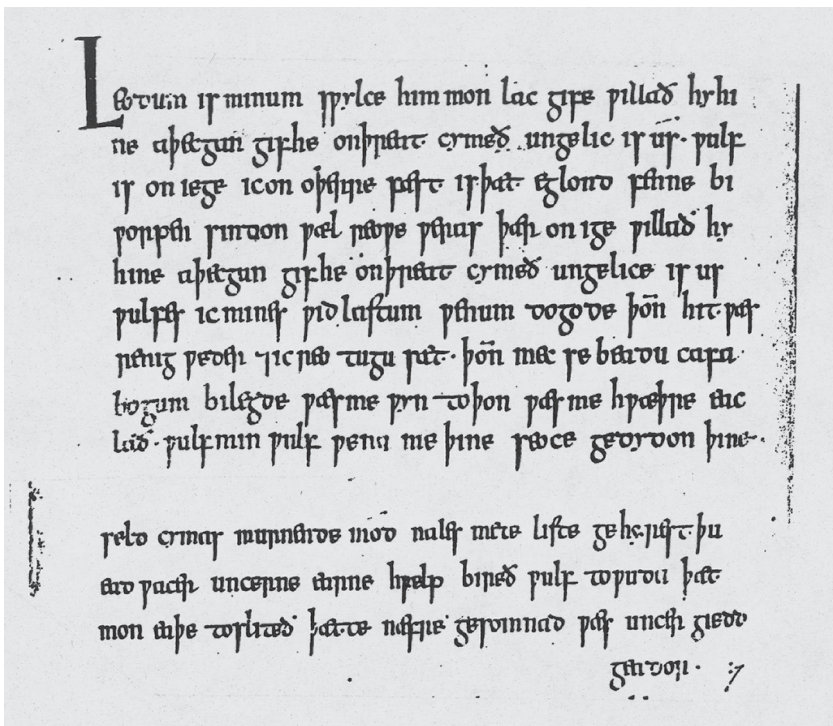 Leodum is minum sƿylce him mon lac gife ƿillað hy hi
ne aþecgan gif he onþreat cymeð ungelic is us · ƿulf
is on iege ic on oþerre fæst is þæt eglond fenne bi
ƿorpen sindon ƿæl reoƿe ƿeras þær on ige ƿillað hy
hine aþecgan gif he onþreat cymeð ungelice is us
ƿulfes ic mines ƿid lastum ƿenum dogode þoñ hit ƿæs
renig ƿeder ⁊ ic reo tugu sæt · þoñ mec se beadu cafa
bogum bilegde ƿæs me ƿyn to þon ƿæs me hƿæþre eac
lað · ƿulf min ƿulf ƿena me þine seoce gedydon þine
seld cymas murnende mod nales mete liste gehyrest þu
ead ƿacer uncerne earne hƿelp bireð ƿulf to ƿuda þæt
mon eaþe tosliteð þætte næfre gesomnad ƿæs uncer giedd
geador · :7